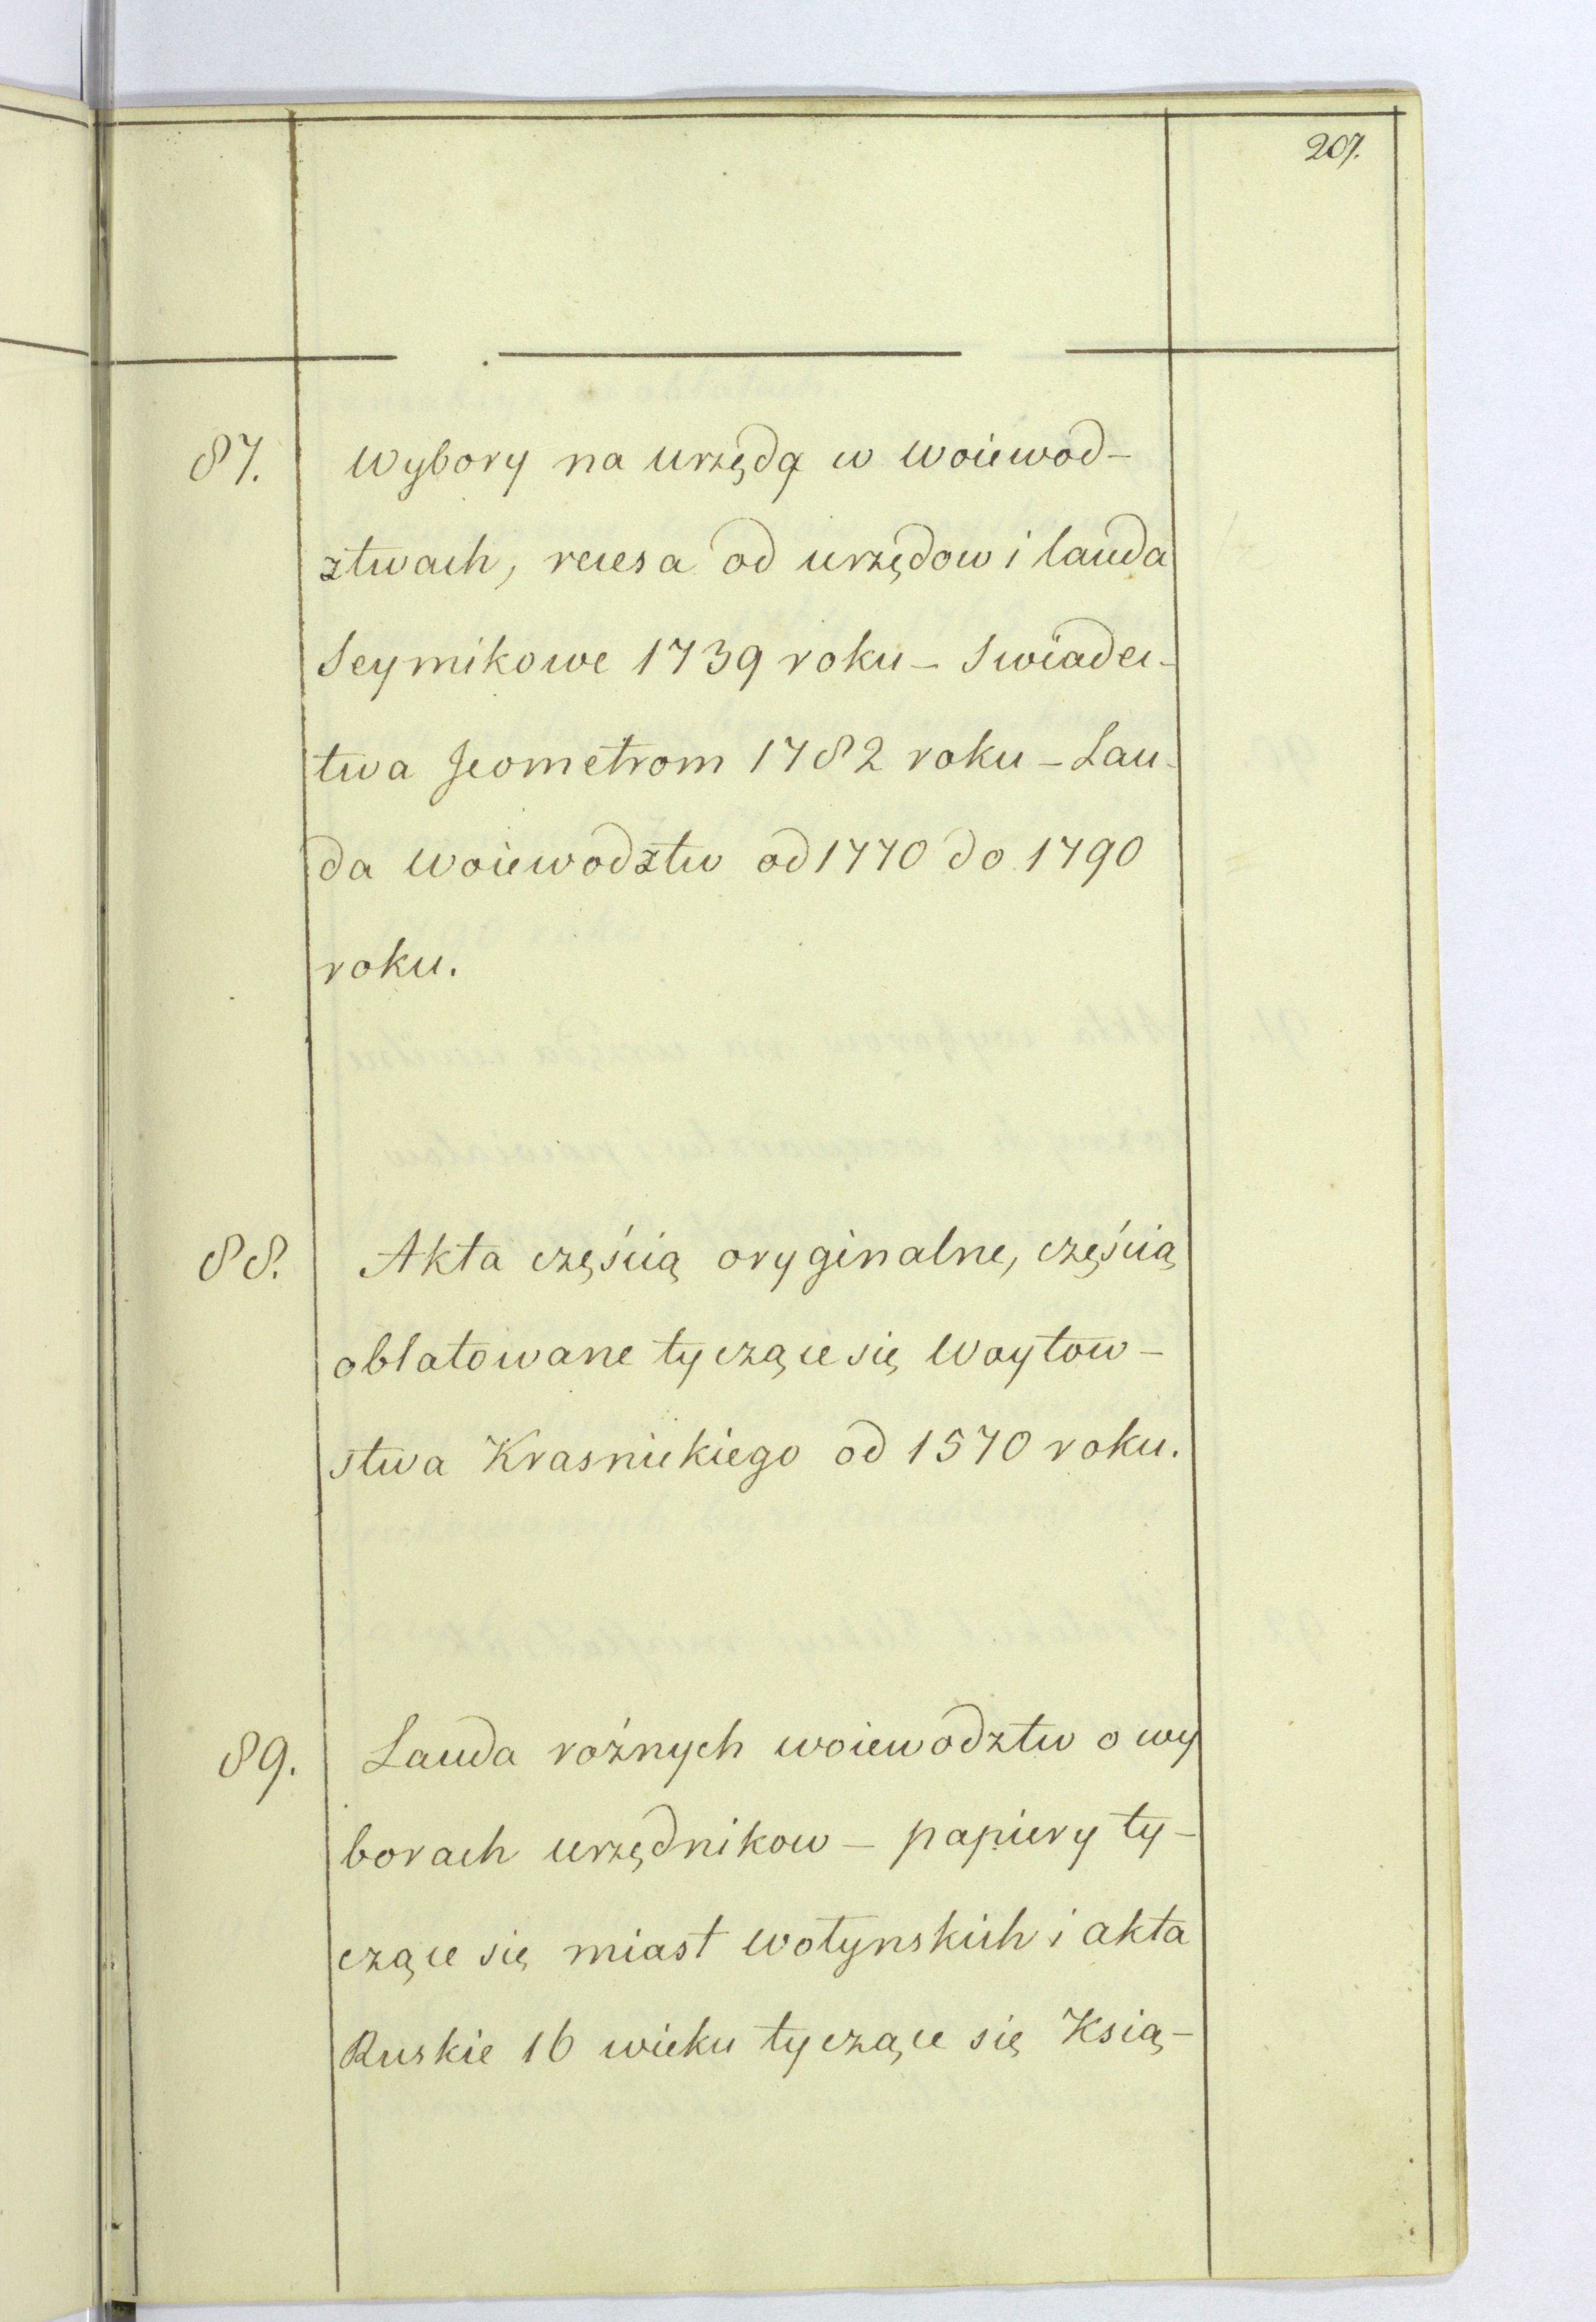 207.
87. Wybory na urzędą w woiewod-
ztwach, recesa od urzędow i lauda
Seymikowe 1739 roku – Swiadec-
twa Jeometrom 1782 roku – Lau-
da woiewodztw od 1770 do 1790
roku.
88. Akta częścią oryginalne, częścią
oblatowane tyczące się Woytow-
stwa Krasnickiego od 1570 roku.
89. Lauda rożnych woiewodztw o wy
borach urzędnikow – papiery ty-
czące się miast wołynskich i akta
Ruskie 16 wieku tyczące się Ksią-